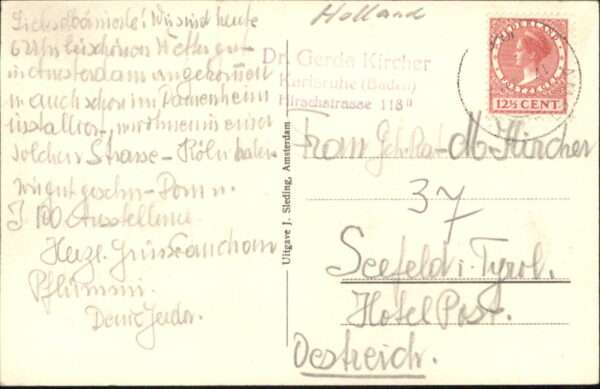 Holland
NEDERLAND
12½ CENT
Dr. Gerda Kircher
Karlsruhe (Baden)
Hirschstrasse 118 II
Wir sind heute
6 Uhr bei schönem Wetter gut
in Amsterdam angekommen
u. auch schon im Damenheim
installiert, wir wohnen in einer
solchen Strasse – Köln haben
wir gut gesehen – Dom u.
Ausstellung
Herzl. Grüsse auch an
Deine Gerda.
Uitgave J. Sleding, Amsterdam
Frau Geh. Rat M. Kircher
37
Seefeld i. Tyrol.
Hotel Post.
Oestreich.